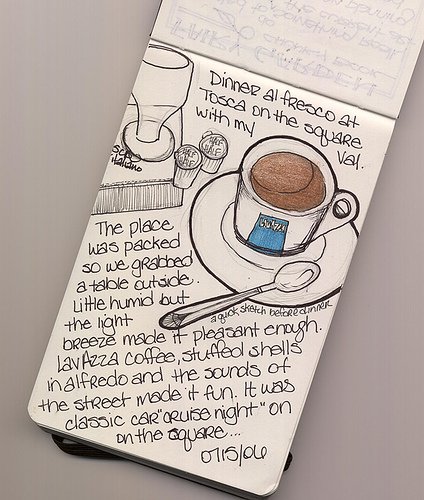 Dinner al fresco at
Tosca on the square
with my
Val.
HALF
HALF
HALF
HALF
italiano
LAVAZZA
The place
was packed
so we grabbed
a table outside.
Little humid but
the light
a quick sketch before dinner
breeze made it pleasant enough.
LavAzza coffee, stuffed shells
in alfredo and the sounds of
the street made it fun. It was
classic car "cruise night" on
on the square...
07/15/06